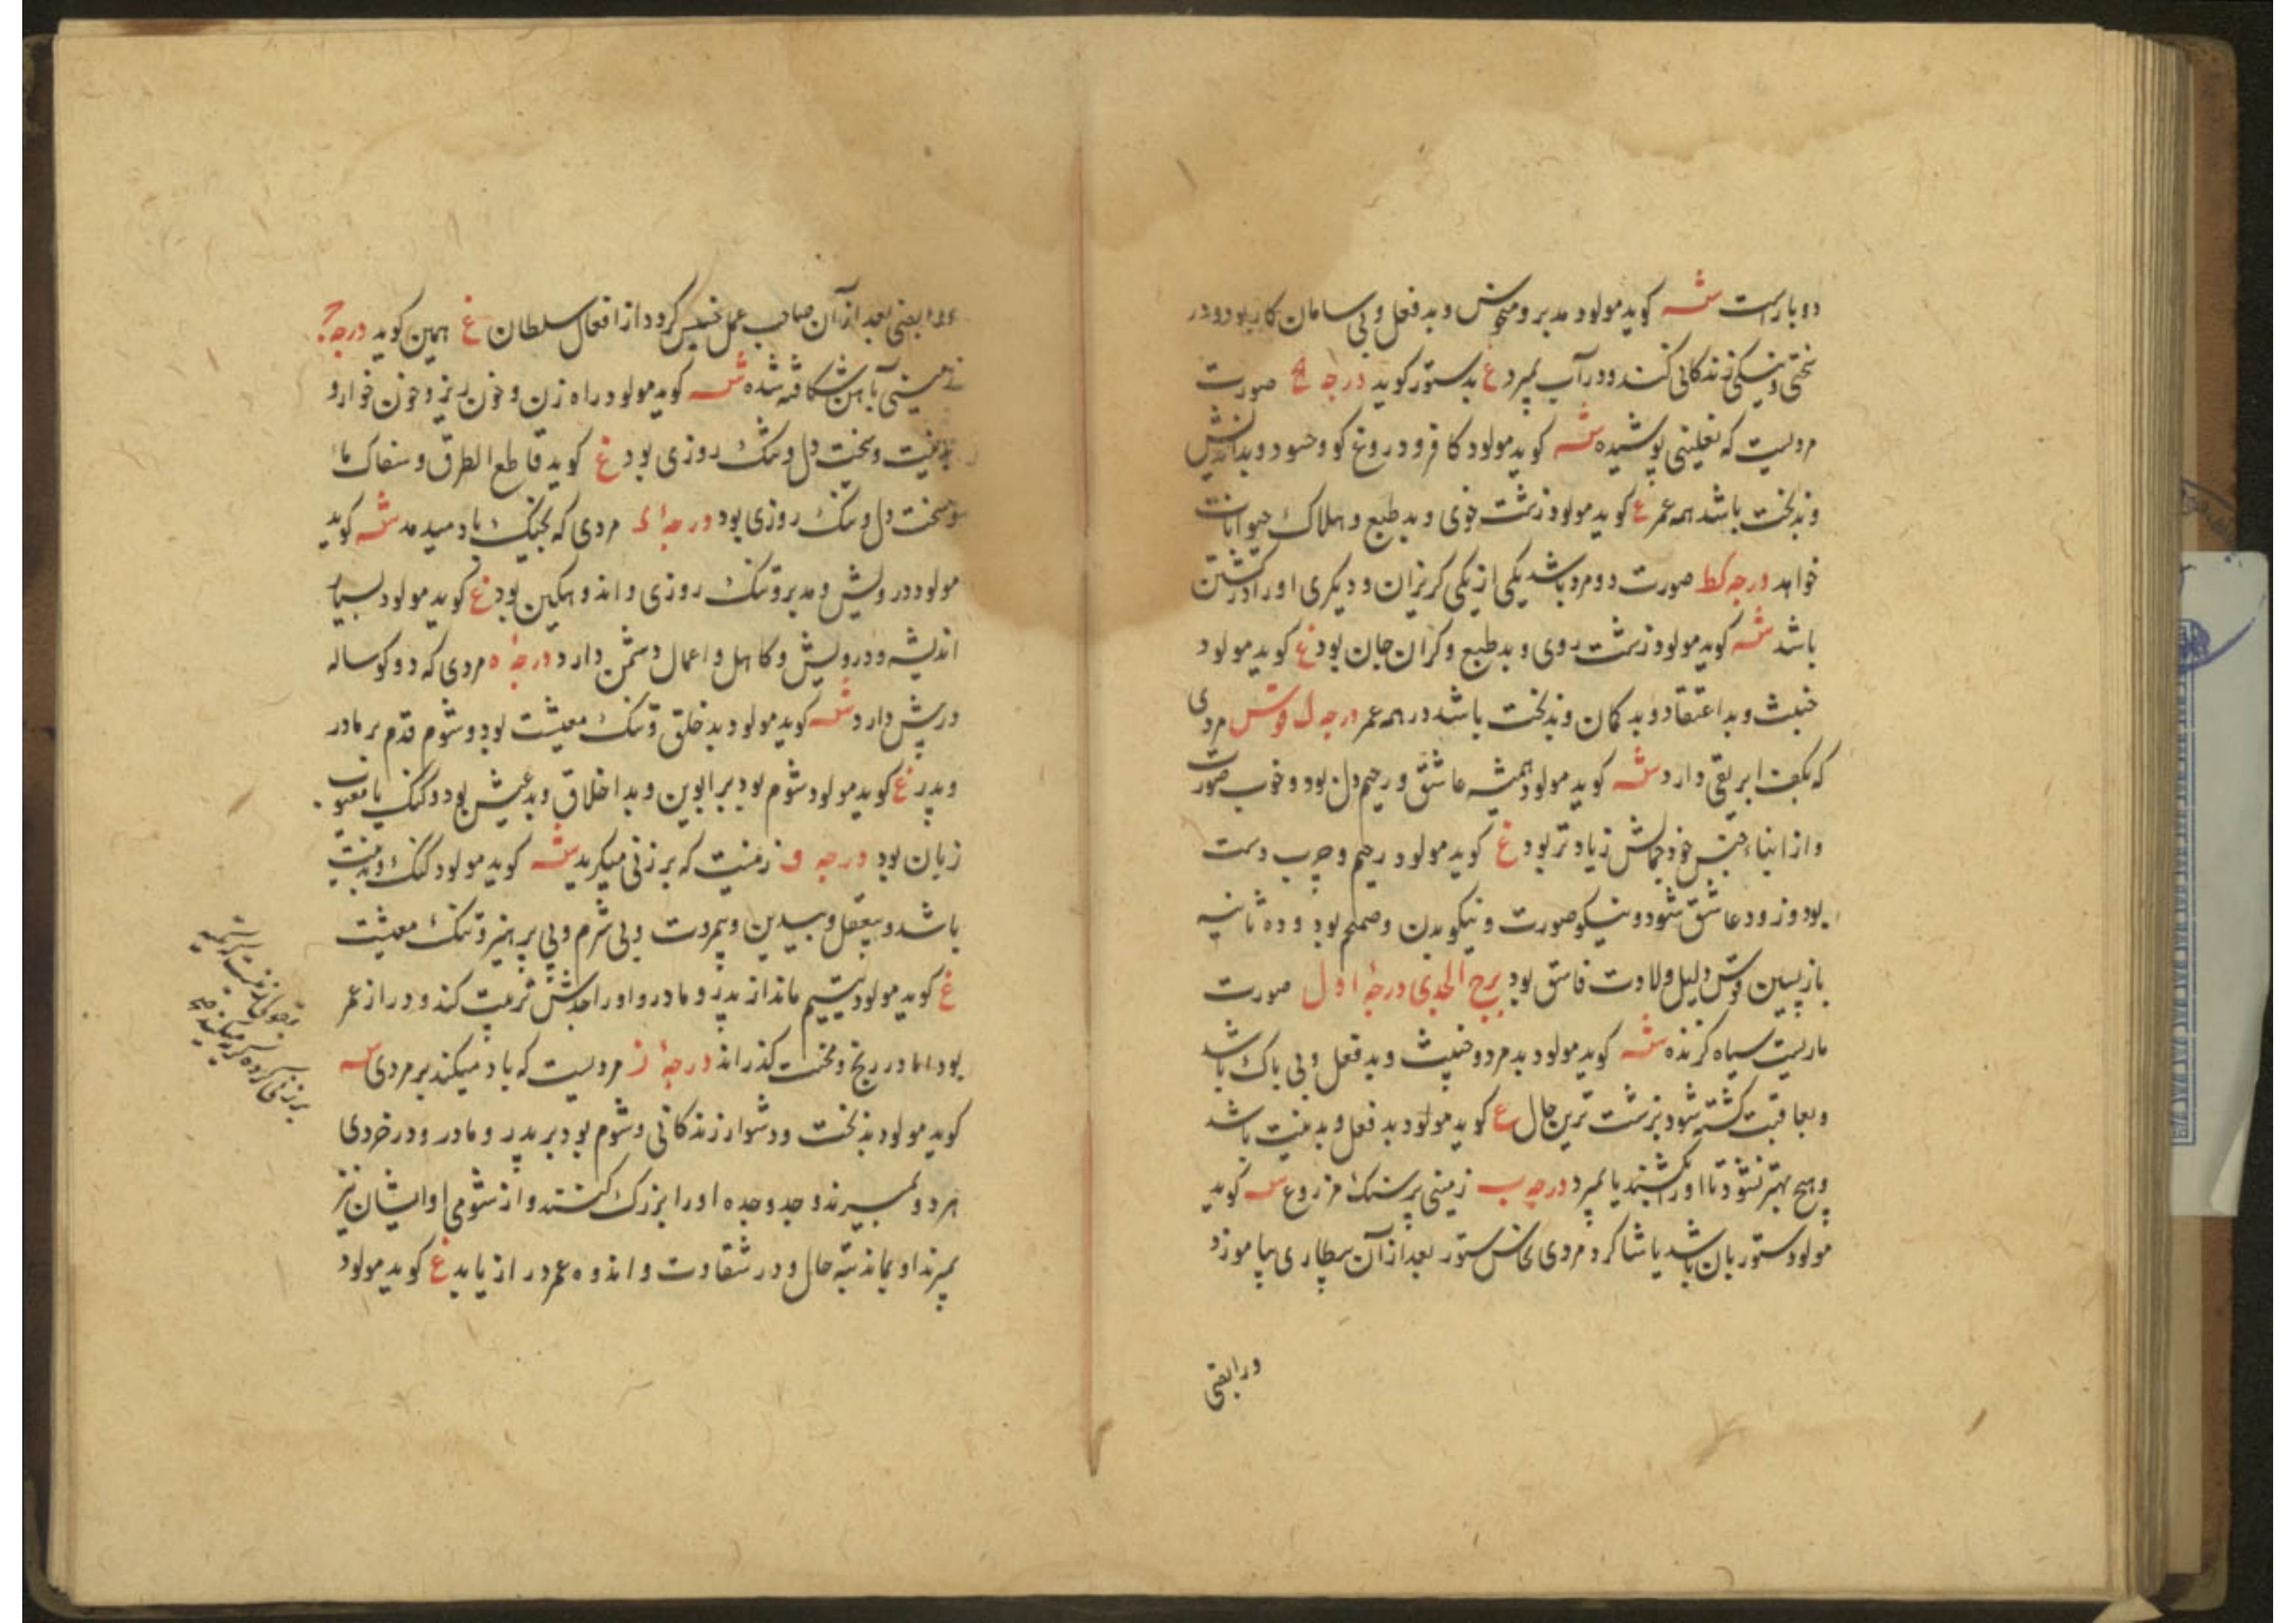 دوبارست شه کوید مولود مدبر و متوحش و بد فعل و بی سامان کار بود و در
سختی و تنکی زندکانی کند و در آب بمیرد غ بدستور کوید درجه کح صورت
مردیست که نعلینی پوشیده شه کوید مولود کافر و دروغ کو و حسود و بداندیش
و بدبخت باشد همه عمر ع کوید مولود زشت خوی و بد طبع و هلاک حیوانات
خواهد درجه کط صورت دو مرد باشد یکی از یکی کریزان و دیکری او را در کشتن
باشد شه کوید مولود زشت روی و بد طبع و کران جان بود غ کوید مولود
خبیث و بد اعتقاد و بد کمان و بدبخت باشد در همه عمر درجه ل قوس مردی
که بکف ابریقی دارد شه کوید مولود همیشه عاشق و رحیم دل بود و خوب صورت
و از ابناء جنس خود جمالش زیادتر بود غ کوید مولود رحیم و چرب دست
بود و زود عاشق شود و نیکو صورت و نیکو بدن و صمم بود و ده ثانیه
بازپسین قوس دلیل ولادت فاسق بود برج الجدی درجهٔ اول صورت
ماریست سیاه کزنده شه کوید مولود بد مرد و خبیث و بد فعل و بی باک باشد
و بعاقبت کشته شود بزشت ترین حال ع کوید مولود بد فعل و بد منیت باشد
و هیچ بهتر نشود تا او را بکشند یا بمیرد درجه ب زمینی پر سنک مزروع شه کوید
مولود ستوربان باشد یا شاکرد مردی نخاس ستور بعد از آن بیطاری بیاموزد
ورابضی
ورابضی بعد از آن صاحب عمل خسیس کردد از افعال سلطان غ همین کوید درجهٔ ج
زمینی بآهن شکافته شده شه کوید مولود راه زن و خون ریز و خون خوار و
بدنیت و سخت دل و تنک روزی بود غ کوید قاطع الطرق و سفاک ماء
و سخت دل و تنک روزی بود درجهٔ د مردی که بچنک باد میدمد شه کوید
مولود درویش و مدبر و تنک روزی و اندوهکین بود غ کوید مولود بسیار
اندیشه و درویش و کاهل و اعمال دشمن دارد درجهٔ ه مردی که دو کوساله
در پیش دارد شه کوید مولود بد خلق و تنک معیشت بود و شوم قدم بر مادر
و پدر غ کوید مولود شوم بود بر ابوین و بد اخلاق و بد عیش بود و کنک یا معیوب
زبان بود درجه و زمنیت که بر زنی میکرید شه کوید مولود کنک و بدنیت
باشد و بیعقل و بیدین و بیمروت و بی شرم و بی پرهیز و تنک معیشت
غ کوید مولود یتیم ماند از پدر و مادر و او را جدش تربیت کند و دراز عمر
بود اما در رنج و محنت کذراند درجهٔ ز مردیست که باد میکند بر مردی شه
کوید مولود بدبخت و دشوار زندکانی و شوم بود بر پدر و مادر و در خردی
هر دو بمیرند و جد و جده او را بزرک کنند و از شومی او ایشان نیز
بمیرند او بماند تبه حال و در شقاوت و اندوه عمر دراز یابد غ کوید مولود